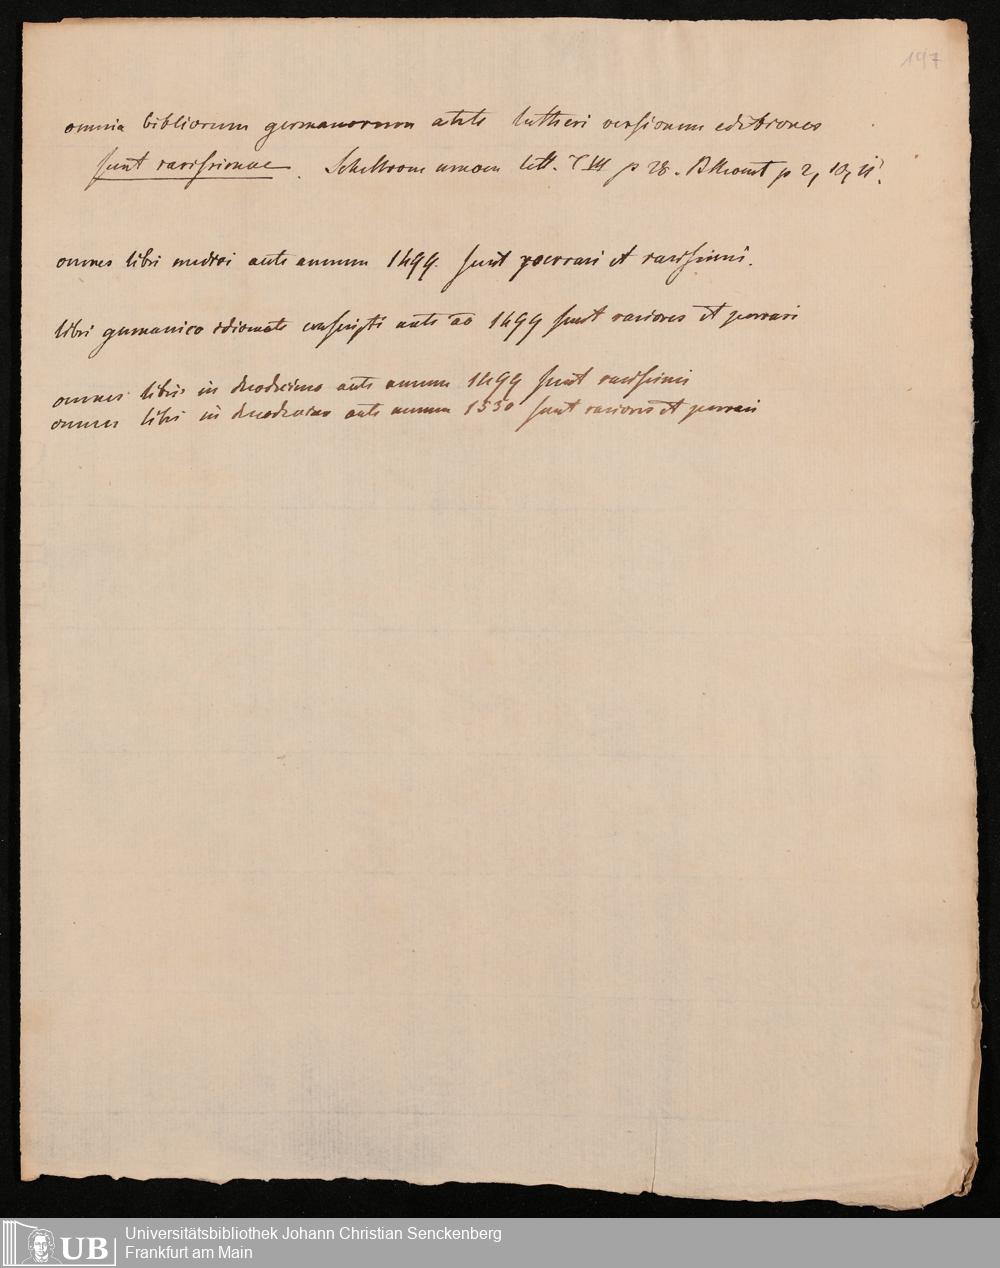 197
omnia bibliorum germanorum ante lutheri versionum editiones
sunt rarissimae. Schelhorn amoen litt. T III p 28. p 2, 10, 11.
omnes libri medici ante annum 1499. sunt perrari et rarissimi.
libri germanico idiomate conscripti ante ao 1499 sunt rariores et perrari
omnes libri in duodecimo ante annum 1499 sunt rarissimi
omnes libri in duodecimo ante annum 1550 sunt rariores et perrari
UB
Universitätsbibliothek Johann Christian Senckenberg
Frankfurt am Main